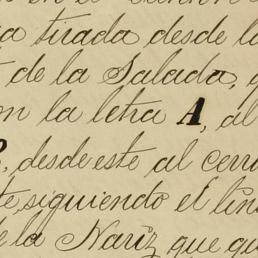 tirada desde la
de la Salada,
la letra A, al
desde este al cerro
siguiendo el lin
de la Nariz que